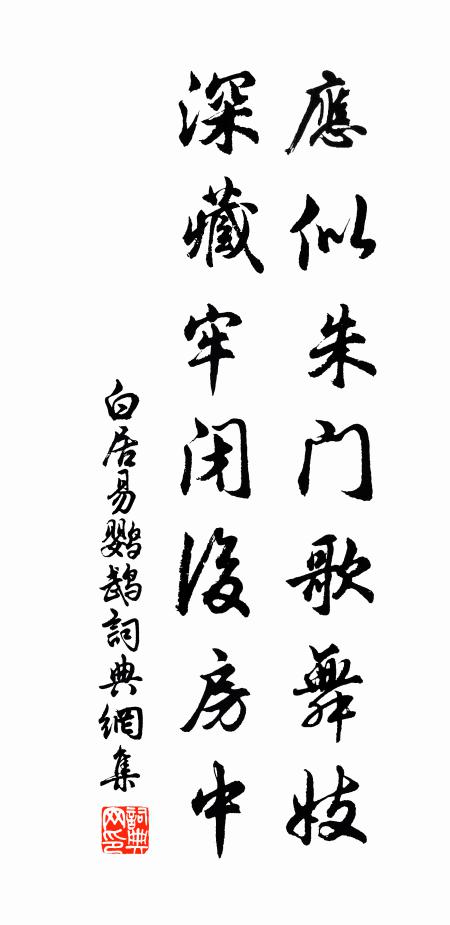 應似朱门歌舞妓
深藏牢闭後房中
白居易鹦鵡詞典網集
詞典网印